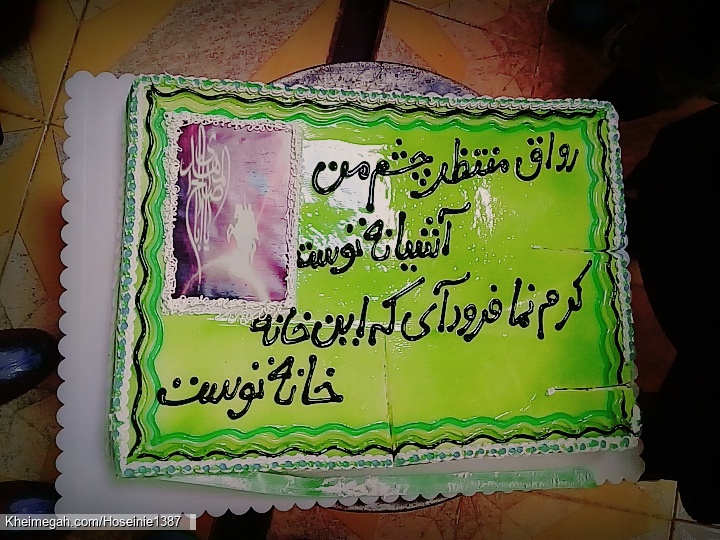 رواق منتظر چشم من
آشیانه توست
کرم نما فرود آی که این خانه
خانه توست
Kheimegah.com/Hoseinie1387